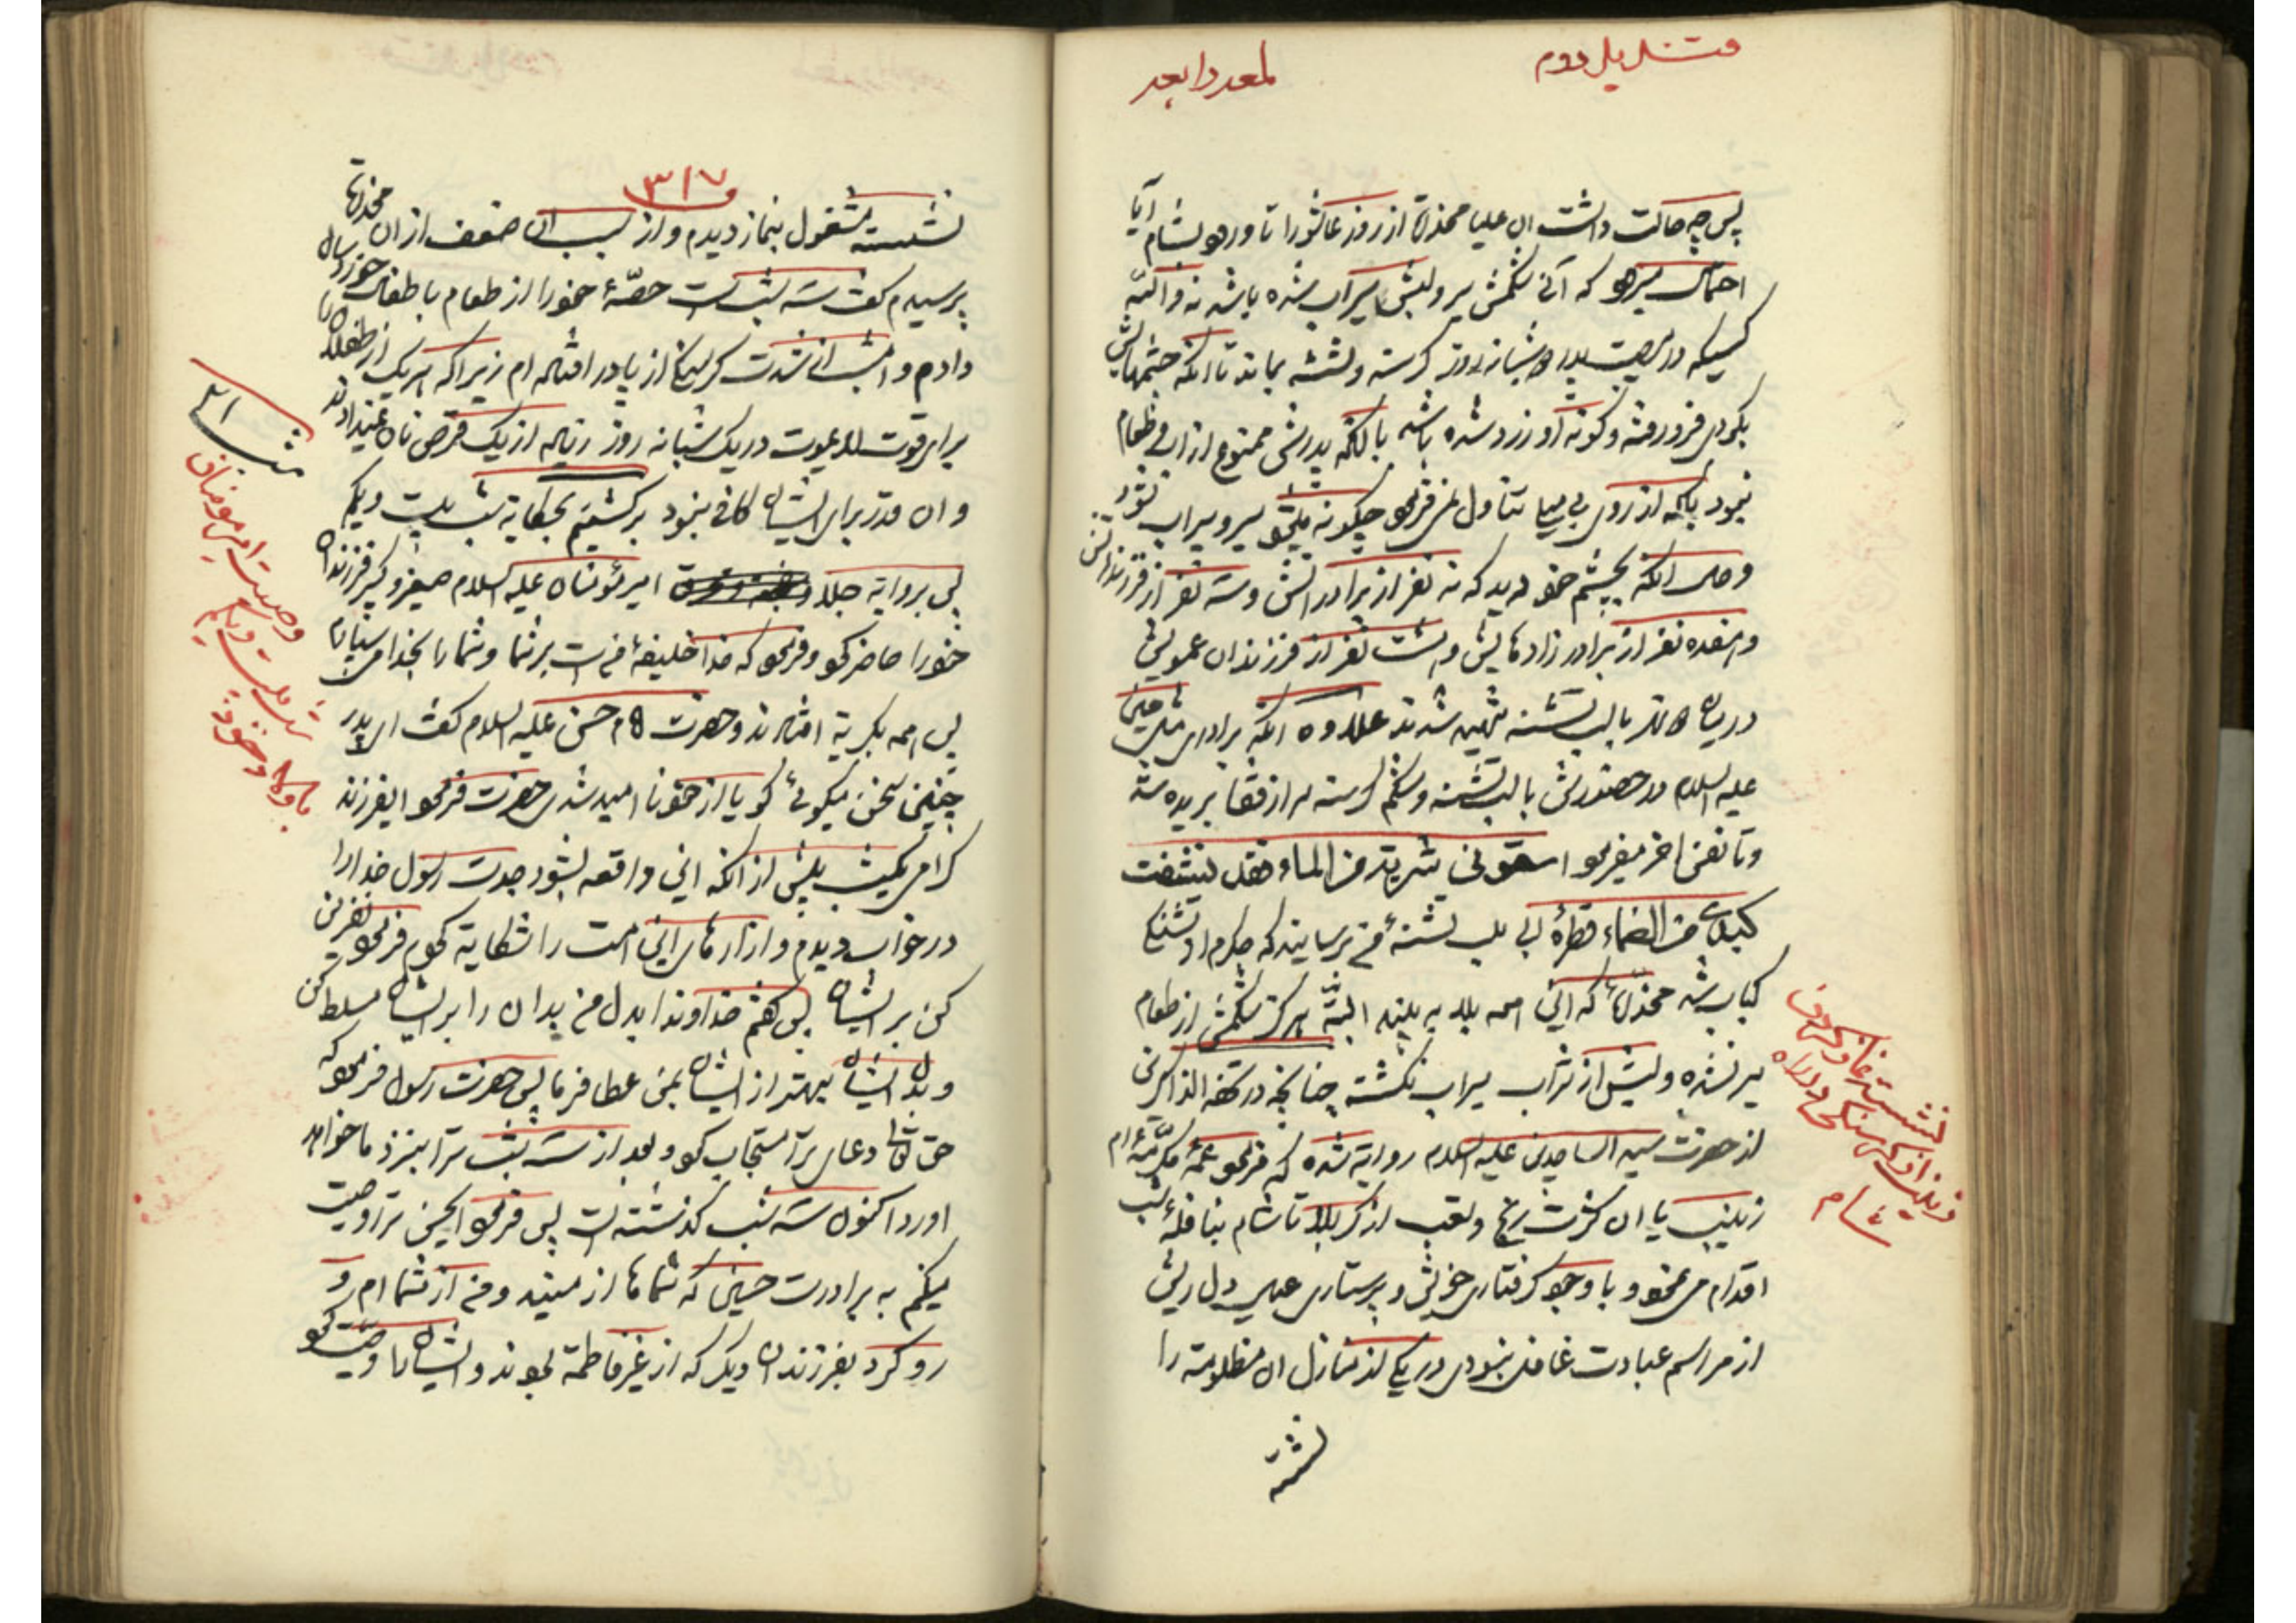 قندیل دوم
لمعه رابعه
پس چه حالت داشت ان علیا مخدره از روز عاشورا تا ورود بشام آیا
احتمال میرود که آنی شکمش سیر و لبش سیراب شده باشد نه والله
کسیکه در مصیبت پدر شبانه روز گرسنه و تشنه بماند تا انکه چشمهایش
بگودی فرو رفته و گونه او زرد شده باشد با انکه پدرش ممنوع از اب و طعام
نبود بلکه از روی بی میلی تناول نمی فرمود چگونه میشود سیر و سیراب شود
و حال انکه بچشم خود دید که نه نفر از برادرانش و سه نفر از فرزندانش
و هفده نفر از برادر زادهایش و هشت نفر از فرزندان عمویش
با لب تشنه شهید شدند علاوه انکه برادری مثل حسین
علیه السلام در حضورش با لب تشنه و شکم گرسنه سر از قفا بریده شد
و تا نفس اخر میفرمود اسقونی شربة من الماء فقد نشفت
کبدی من الظماء قطره ابی بلب تشنه من برسانید که جگرم از تشنگی
کباب شد مخدره که این همه بلا به بیند البته هرگز شکمش از طعام
سیر نشده و لبش از شراب سیراب نگشته چنانچه در تحفه الذاکرین
از حضرت سید الساجدین علیه السلام روایة شده که فرمود عمه مکرمه ام
زینب با ان کثرت رنج و تعب از کربلا تا شام بنافله شب
اقدام می نمود و با وجود گرفتاری خویش و پرستاری عیال دل ریش
از مراسم عبادت غافل نبودی در یکی از منازل ان مظلومه را
نشسته
نشسته نماز کردن
زینب از گرسنگی در راه
شام
۳۱۷
نشسته مشغول بنماز دیدم و از سبب ان ضعف از ان مخدره
پرسیدم گفت سه شب است حصهٔ خود را از طعام باطفال خورد سال
دادم و امشب از شدت گرسنگی از پا در افتاده ام زیرا که هر یک از اطفال را
برای قوت لایموت در یک شبانه روز زیاده از یک قرص نان نمیدادند
و ان قدر برای ایشان کافی نبود برگشتیم بحکایة شب بیست و یکم
پس بروایة جلاء امیر مؤمنان علیه السلام صغیر و کبیر فرزندان
خود را حاضر کرد و فرمود که خدا خلیفهٔ من است بر شما و شما را بخدا می سپارم
پس همه بگریه افتادند و حضرت امام حسن علیه السلام گفت ای پدر
چنین سخن میگوئی گویا از خود نا امید شدی حضرت فرمود ایفرزند
گرامی یکشب پیش از انکه این واقعه بشود جدت رسول خدا را
در خواب دیدم و از ازارهای این امت را شکایة کردم فرمود نفرین
کن بر ایشان پس گفتم خداوندا بدل من بدان را بر ایشان مسلط کن
و بدل ایشان بهتر از ایشان بمن عطا فرما پس حضرت رسول فرمود که
حق تعالی دعای ترا مستجاب کرد و بعد از سه شب ترا بنزد ما خواهد
اورد اکنون سه شب گذشته است پس فرمود ایحسن ترا وصیت
میکنم به برادرت حسین که شماها از منید و من از شما ام و
رو کرد بفرزندان دیگر که از غیر فاطمة بودند و ایشان را وصیت کرد
وصیت امیر مومنان
شب بیست و یکم
باولاد خود